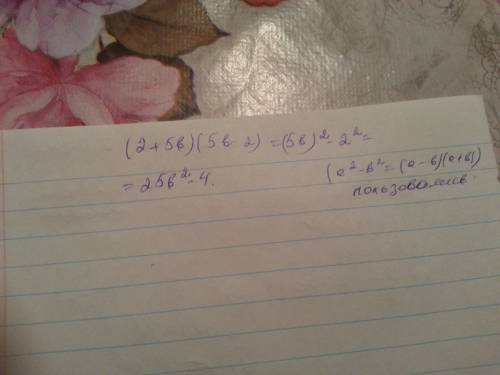 (2+5в)(5в-2)=(5в)²-2²=
=25в²-4.
(а²-в²=(а-в)(а+в))
пользовались.